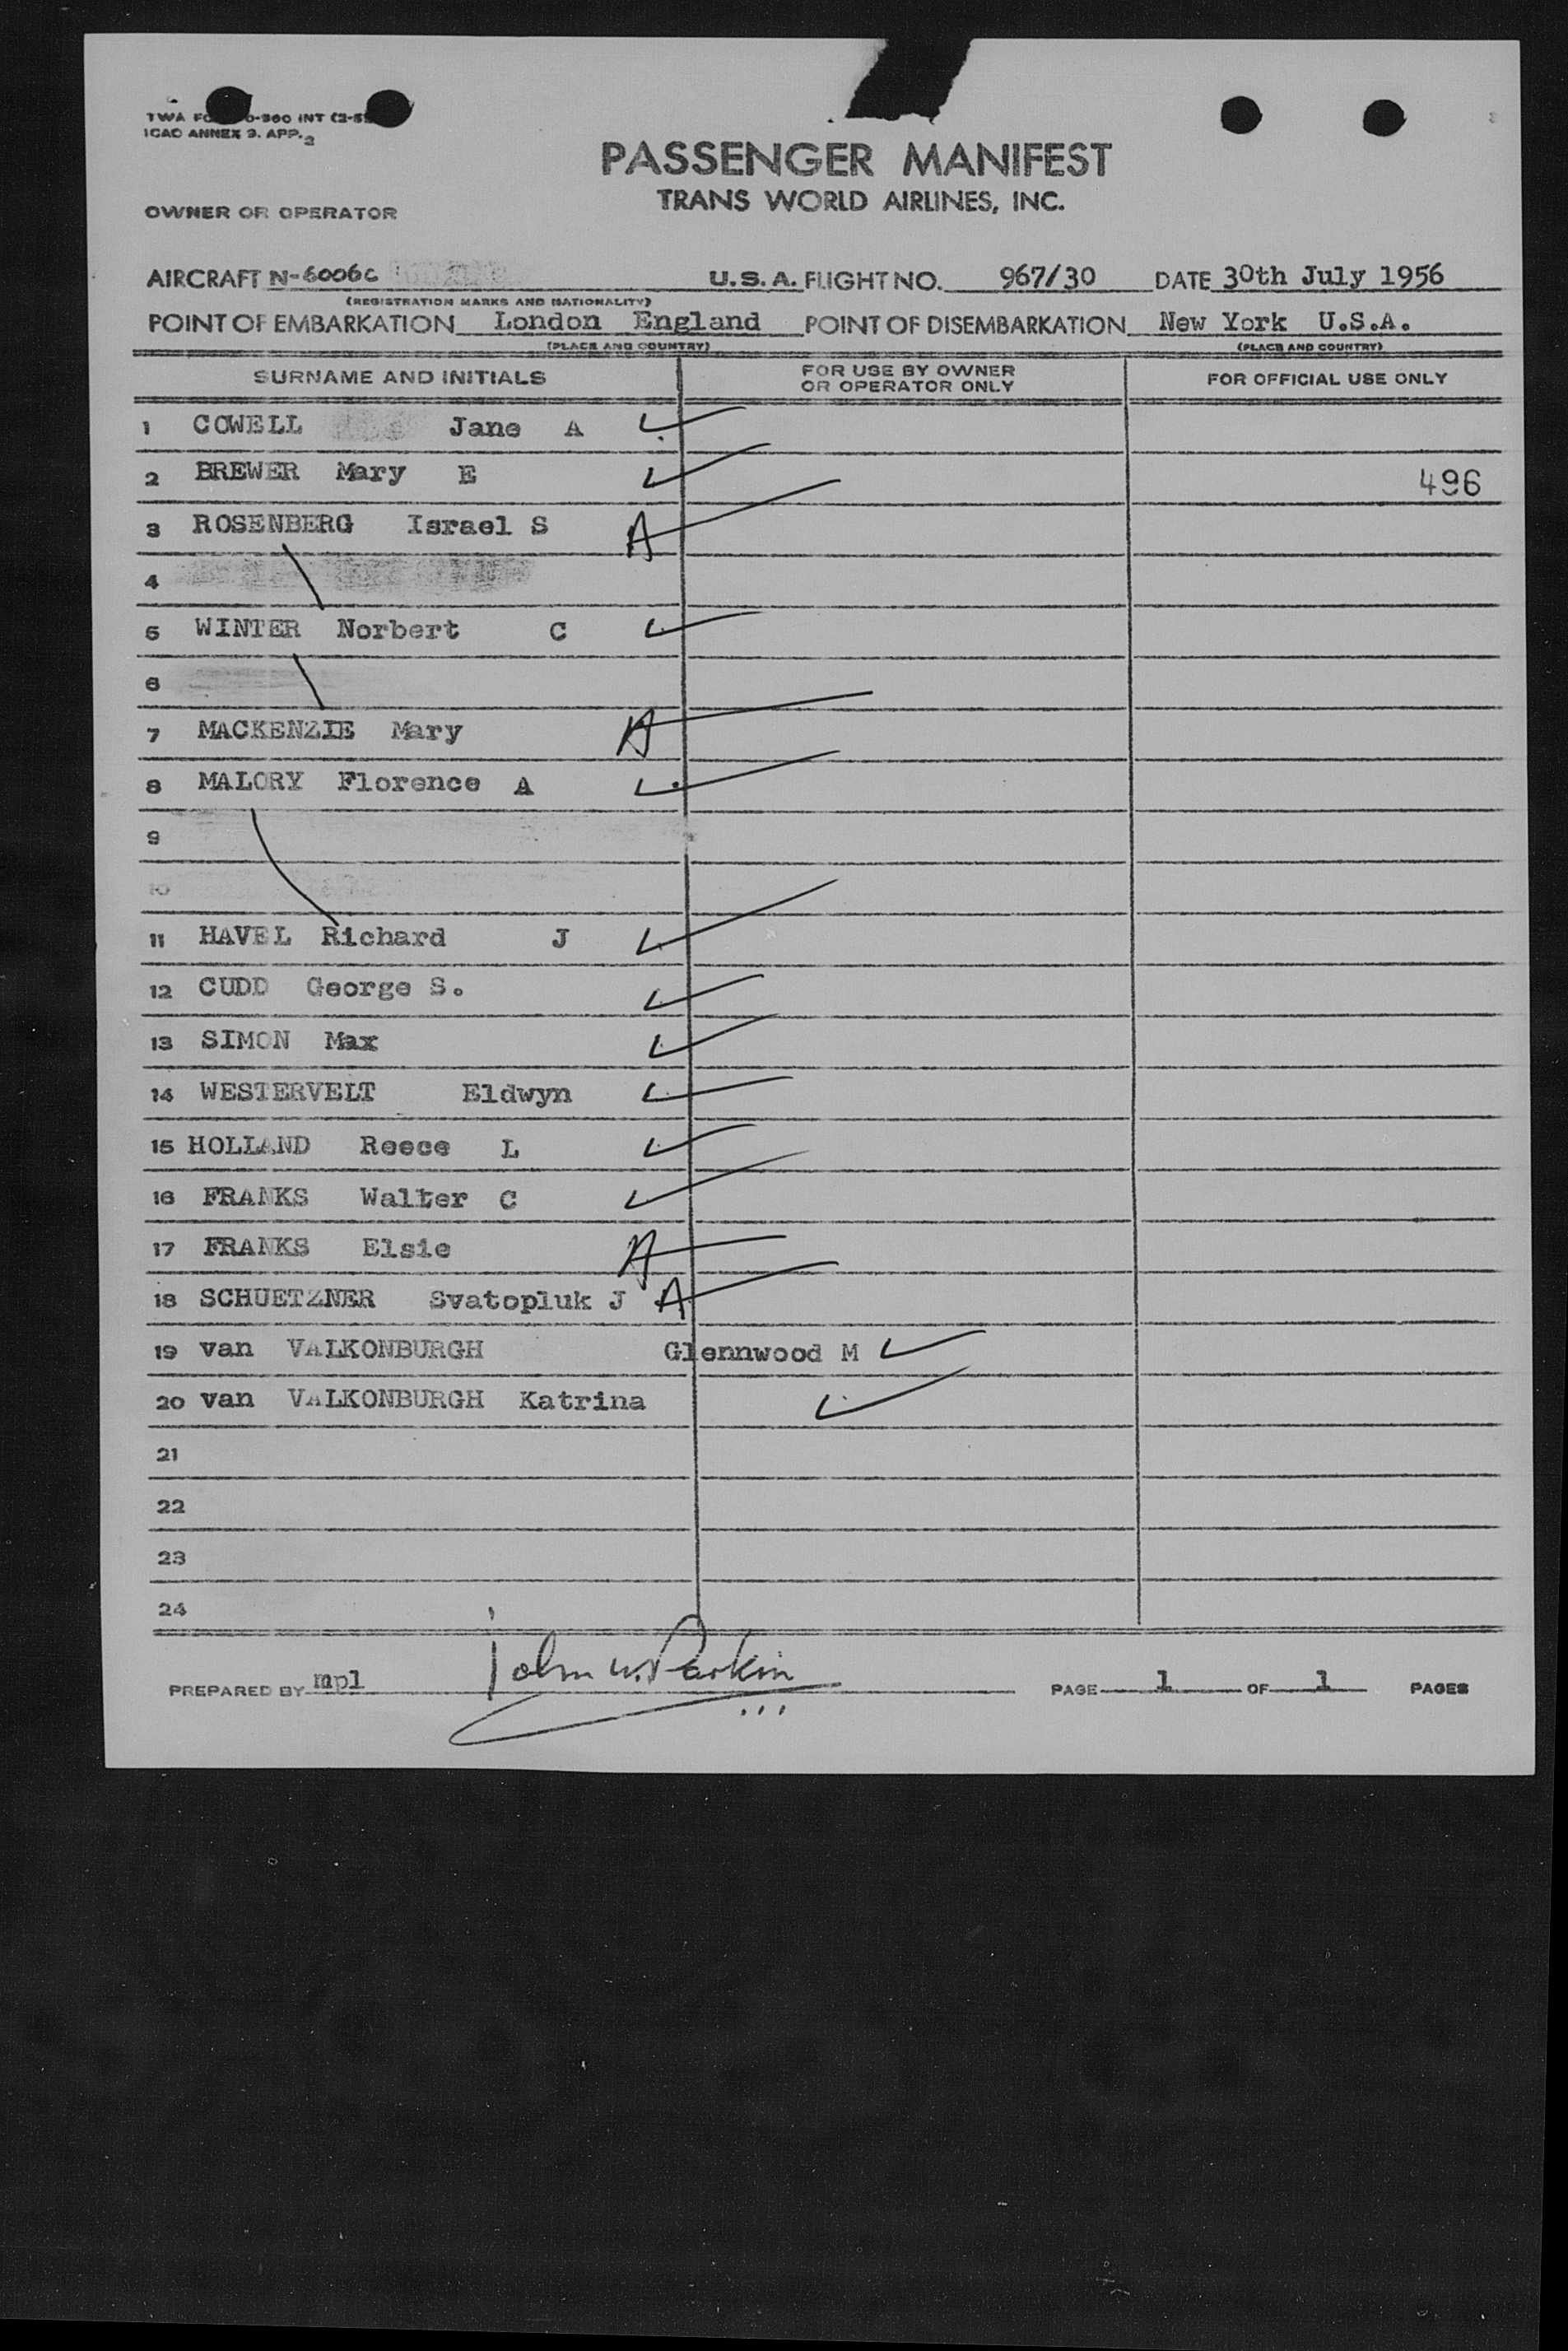 TWA FO 0-300 INT (2-5
ICAO ANNEX 9. APP. 2
PASSENGER MANIFEST
TRANS WORLD AIRLINES, INC.
OWNER OR OPERATOR
AIRCRAFT N-6006C U.S.A. FLIGHT NO. 967/30 DATE 30th July 1956
(REGISTRATION MARKS AND NATIONALITY)
POINT OF EMBARKATION London England POINT OF DISEMBARKATION New York U.S.A.
(PLACE AND COUNTRY) (PLACE AND COUNTRY)
SURNAME AND INITIALS FOR USE BY OWNER OR OPERATOR ONLY FOR OFFICIAL USE ONLY
1 COWELL Jane A
2 BREWER Mary E 496
3 ROSENBERG Israel S A
4
5 WINTER Norbert C
6
7 MACKENZIE Mary A
8 MALORY Florence A
9
10
11 HAVEL Richard J
12 CUDD George S.
13 SIMON Max
14 WESTERVELT Eldwyn
15 HOLLAND Reece L
16 FRANKS Walter C
17 FRANKS Elsie A
18 SCHUETZNER Svatopluk J A
19 van VALKONBURGH Glennwood M
20 van VALKONBURGH Katrina
21
22
23
24
PREPARED BY mpl John W. Parkin PAGE 1 OF 1 PAGES